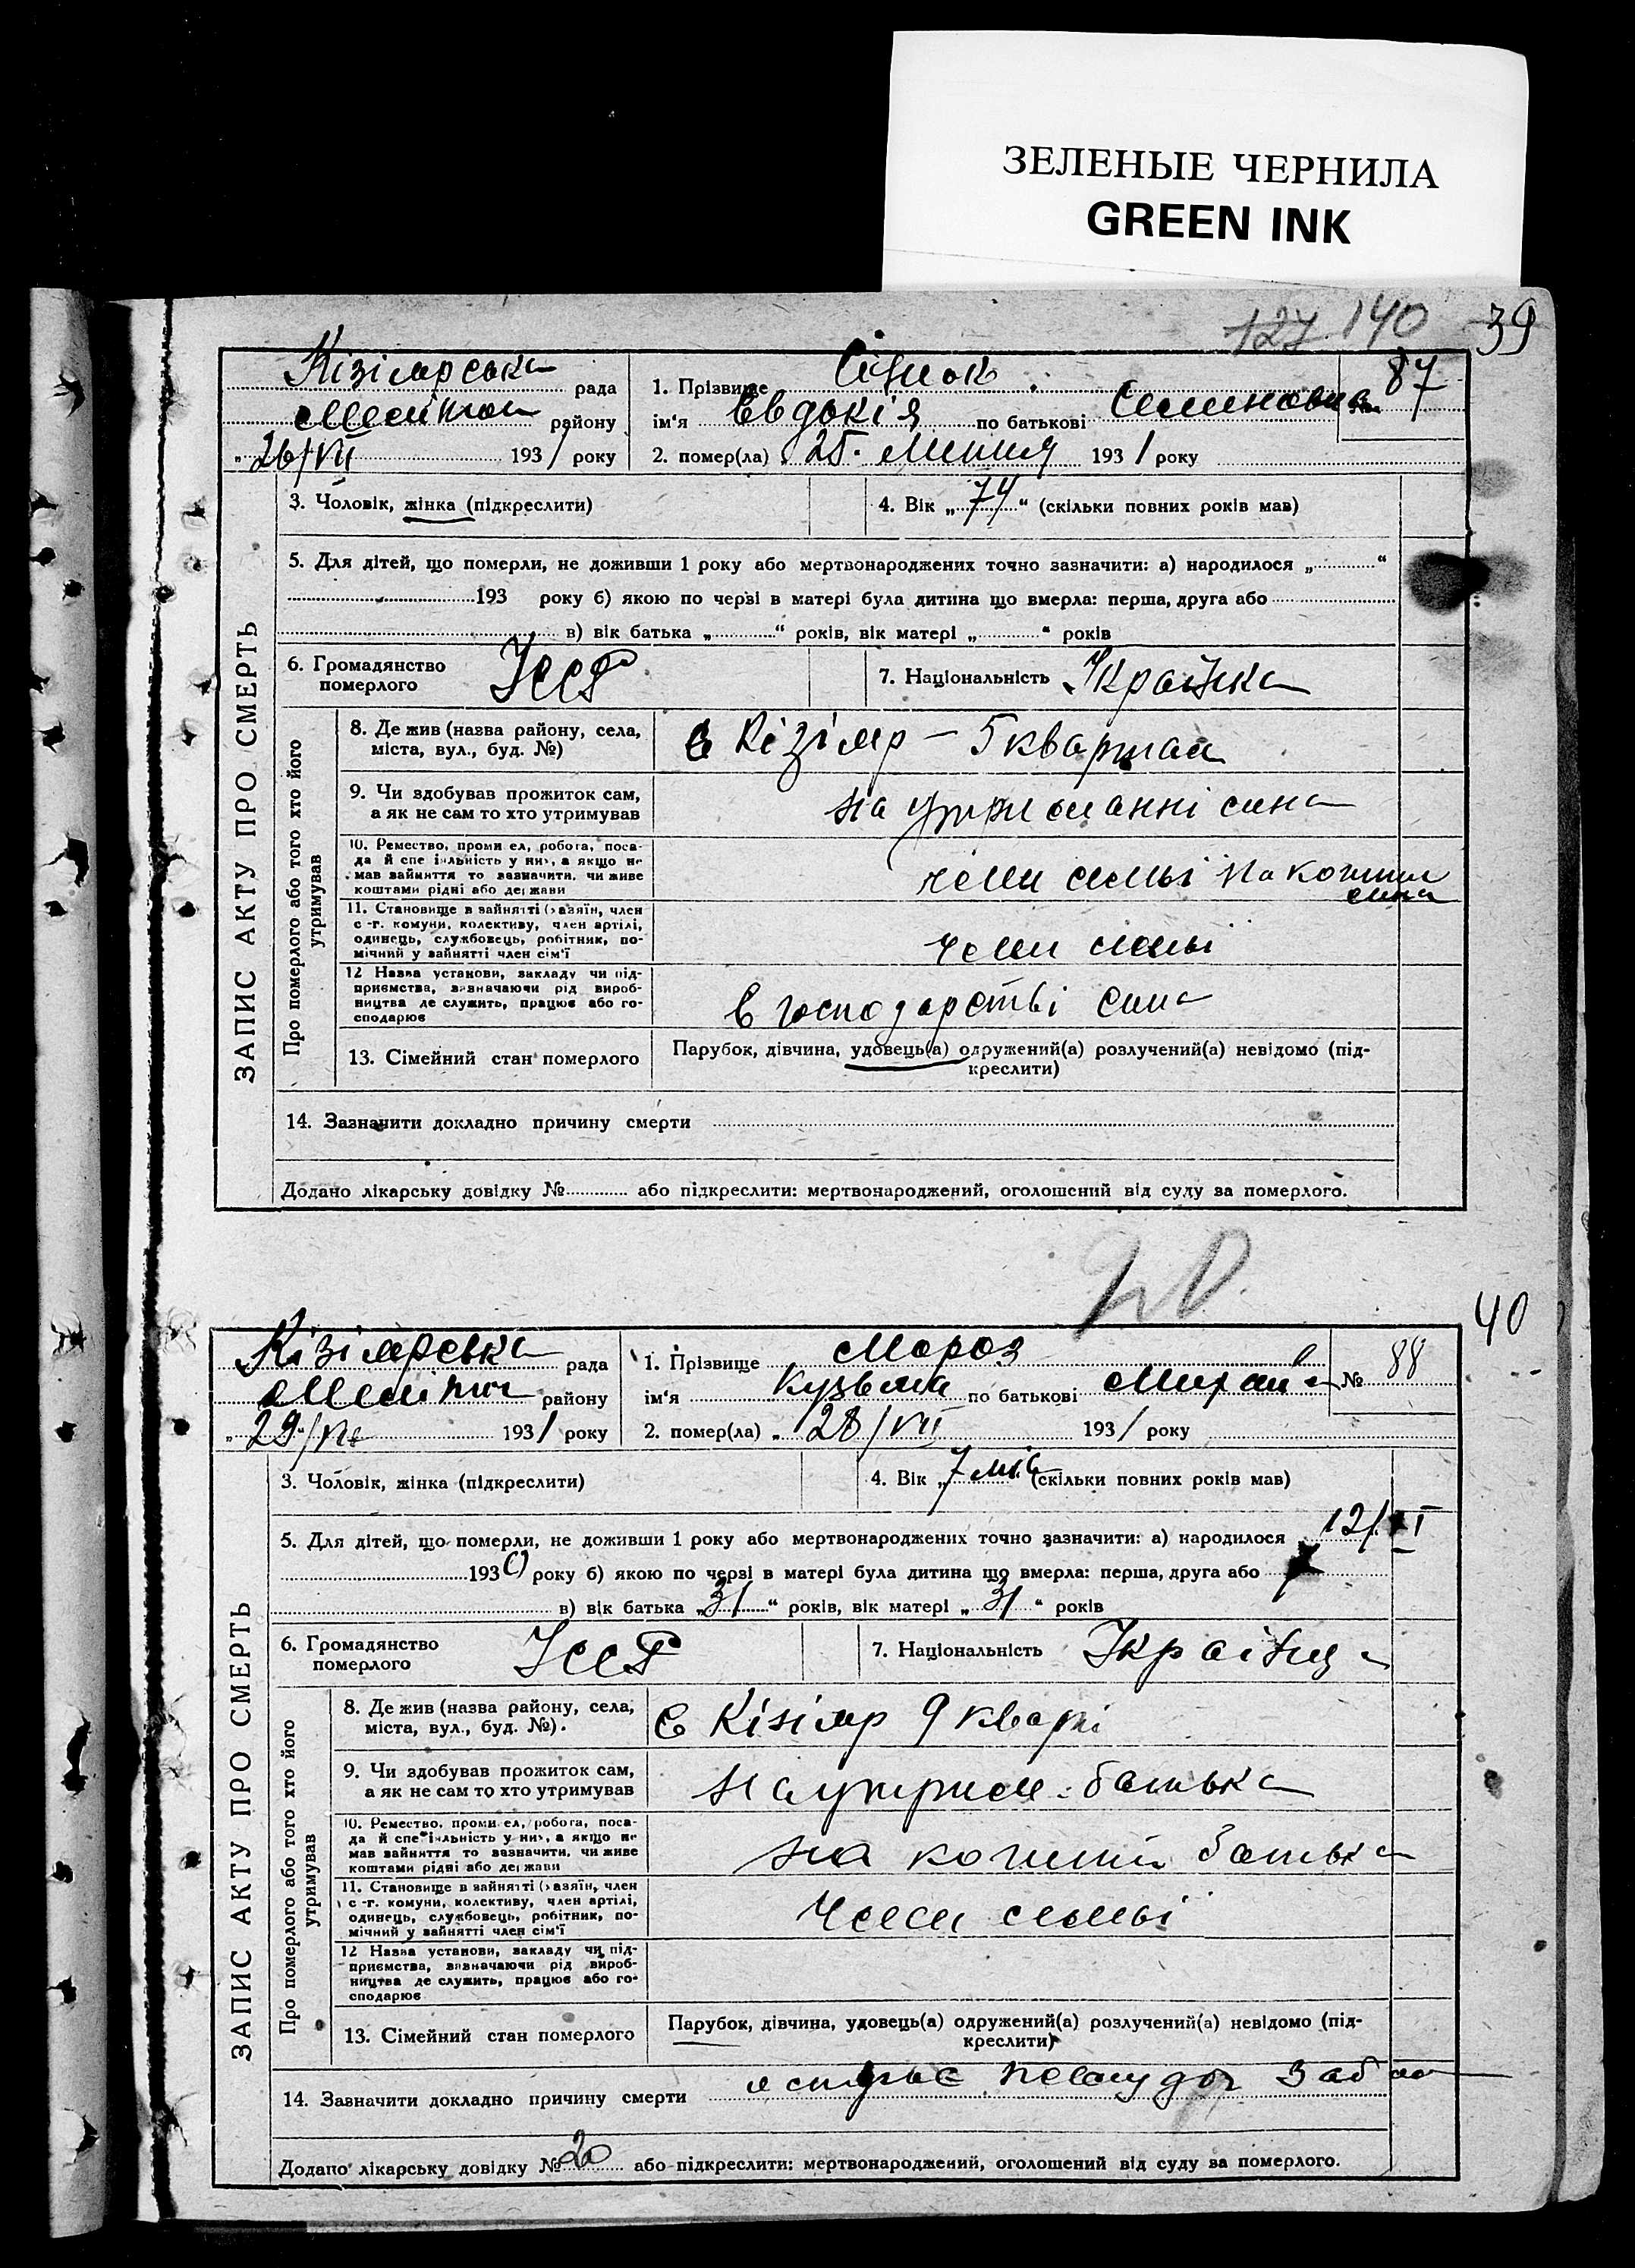 ЗЕЛЕНЫЕ ЧЕРНИЛА
GREEN INK
127 140 39
Кізіярська рада
району
26/VII 1931 року
1. Прізвище
ім'я Евдокія по батькові Семеновна
87
2. помер(ла) 25. Липня 1931 року
ЗАПИС АКТУ ПРО СМЕРТЬ
3. Чоловік, жінка (підкреслити)
4. Вік „74“ (скільки повних років мав)
5. Для дітей, що померли, не доживши 1 року або мертвонароджених точно зазначити: а) народилося „ “
193 року б) якою по черзі в матері була дитина що вмерла: перша, друга або
в) вік батька „ “ років, вік матері „ “ років
6. Громадянство померлого УССР
7. Національність Українка
Про померлого або того хто його утримував
8. Де жив (назва району, села,
міста, вул., буд. №)
в Кізіяр – 5 квартал
9. Чи здобував прожиток сам,
а як не сам то хто утримував
на утриманні сина
10. Ремество, промисел, робота, поса-
да й спеціяльність у них, а якщо не
мав зайняття то зазначити, чи живе
коштами рідні або держави
член семьі на кошти
сина
11. Становище в зайнятті (хазяїн, член
с.-г. комуни, колективу, член артілі,
одинець, службовець, робітник, по-
мічний у зайнятті член сім'ї
член семьі
12 Назва установи, закладу чи під-
приємства, зазначаючи рід вироб-
ництва де служить, працює або го-
сподарює
в господарстві сина
13. Сімейний стан померлого
Парубок, дівчина, удовець(а) одружений(а) розлучений(а) невідомо (під-
креслити)
14. Зазначити докладно причину смерти
Додано лікарську довідку № або підкреслити: мертвонароджений, оголошений від суду за померлого.
40
Кізіярська рада
району
29/VII 1931 року
1. Прізвище Мороз
ім'я Кузьма по батькові
№ 88
2. помер(ла) 28/VII 1931 року
ЗАПИС АКТУ ПРО СМЕРТЬ
3. Чоловік, жінка (підкреслити)
4. Вік „7 міс (скільки повних років мав)
5. Для дітей, що померли, не доживши 1 року або мертвонароджених точно зазначити: а) народилося 12/
1930 року б) якою по черзі в матері була дитина що вмерла: перша, друга або
в) вік батька „31“ років, вік матері „31“ років
6. Громадянство померлого УССР
7. Національність
Про померлого або того хто його утримував
8. Де жив (назва району, села,
міста, вул., буд. №).
в Кізіяр 9 кварт
9. Чи здобував прожиток сам,
а як не сам то хто утримував
на утрим. батька
10. Ремество, промисел, робота, поса-
да й спеціяльність у них, а якщо не
мав зайняття то зазначити, чи живе
коштами рідні або держави
на кошти батька
11. Становище в зайнятті (хазяїн, член
с.-г. комуни, колективу, член артілі,
одинець, службовець, робітник, по-
мічний у зайнятті член сім'ї
член семьі
12 Назва установи, закладу чи під-
приємства, зазначаючи рід вироб-
ництва де служить, працює або го-
сподарює
13. Сімейний стан померлого
Парубок, дівчина, удовець(а) одружений(а) розлучений(а) невідомо (під-
креслити)
14. Зазначити докладно причину смерти
Додано лікарську довідку № 20 або підкреслити: мертвонароджений, оголошений від суду за померлого.